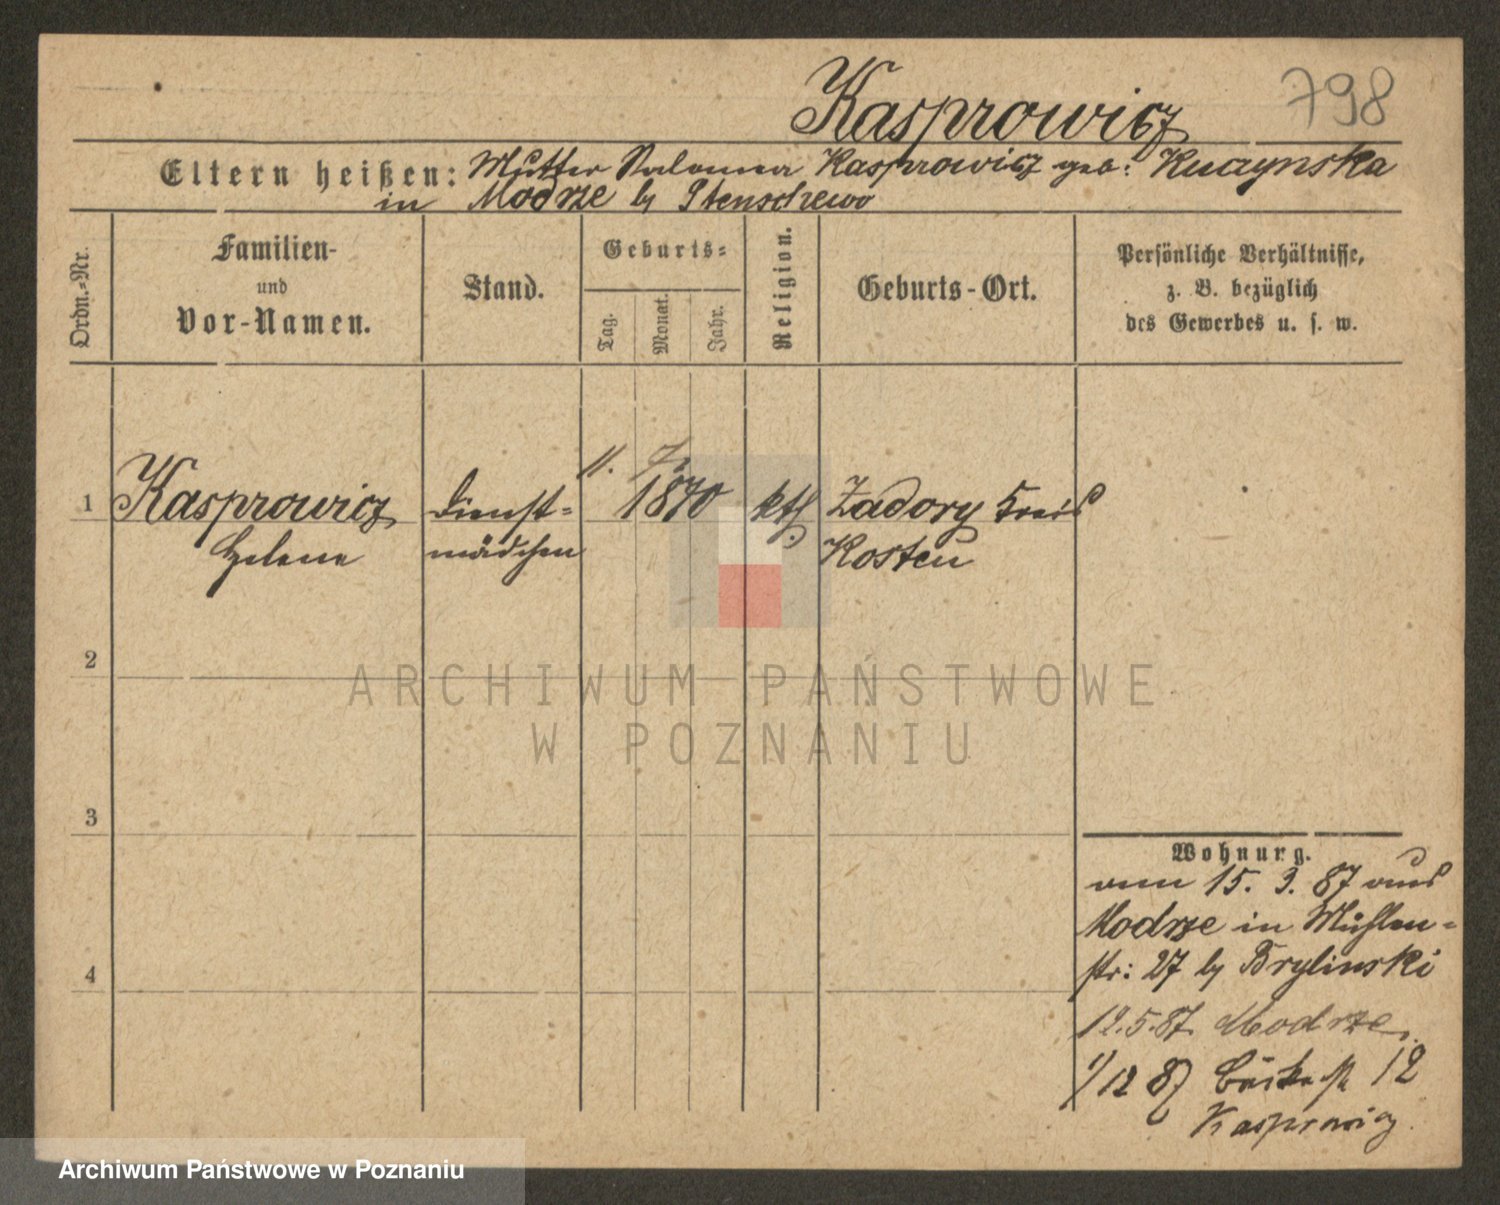 Kasprowicz 798
Eltern heißen: Mutter Salomea Kasprowicz geb: Kuczynska
in Modrze by Stenschewo
Ordn.-Nr.
Familien-
und
Vor-Namen.
Stand.
Geburts-
Tag.
Monat.
Jahr.
Religion.
Geburts-Ort.
Persönliche Verhältnisse,
z. B. bezüglich
des Gewerbes u. s. w.
1 Kasprowicz Dienst- 11. 7. 1870 kth. Zadory Kreis
Helene mädchen Kosten
2
ARCHIWUM PAŃSTWOWE
W POZNANIU
3
Wohnung.
vom 15. 3. 87 aus
Modrze in Mühlen-
str: 27 by Brylinski
4
12.5.87 Modrze
1/12 87 12
Kasprowicz
Archiwum Państwowe w Poznaniu